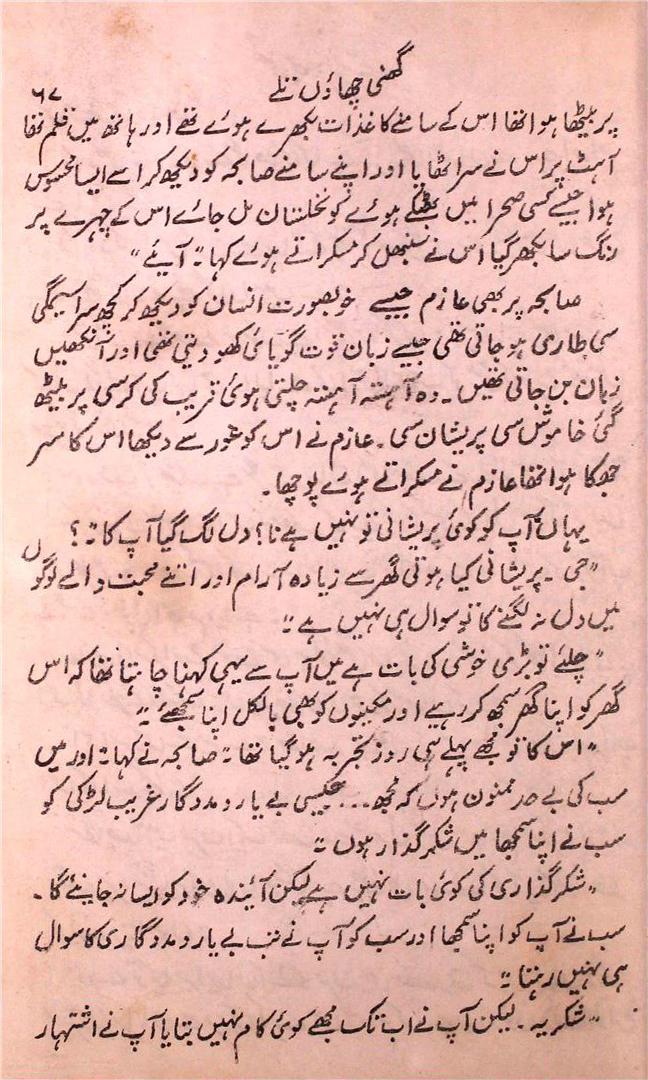 گھنی چھاؤں تلے
۶۷
پر بیٹھا ہوا تھا اس کے سامنے کاغذات بکھرے ہوئے تھے اور ہاتھ میں قلم تھا
آہٹ پر اس نے سر اٹھایا اور اپنے سامنے صابحہ کو دیکھ کر اسے ایسا محسوس
ہوا جیسے کسی صحرا میں بھٹکے ہوئے کو نخلستان مل جائے اس کے چہرے پر
رنگ سا بکھر گیا اس نے سنبھل کر مسکراتے ہوئے کہا "آیئے"
صابحہ پر بھی عازم جیسے خوبصورت انسان کو دیکھ کر کچھ سراسیمگی
سی طاری ہو جاتی تھی جیسے زبان قوت گویائی کھو دیتی تھی اور آنکھیں
زبان بن جاتی تھیں۔ وہ آہستہ آہستہ چلتی ہوئی قریب کی کرسی پر بیٹھ
گئی خاموش سی پریشان سی۔ عازم نے اس کو غور سے دیکھا اس کا سر
جھکا ہوا تھا عازم نے مسکراتے ہوئے پوچھا۔
یہاں آپ کو کوئی پریشانی تو نہیں ہے نا؟ دل لگ گیا آپ کا"؟
"جی۔ پریشانی کیا ہوتی گھر سے زیادہ آرام اور اتنے محبت والے لوگوں
میں دل نہ لگنے کا تو سوال ہی نہیں ہے"
"چلئے تو بڑی خوشی کی بات ہے میں آپ سے یہی کہنا چاہتا تھا کہ اس
گھر کو اپنا گھر سمجھ کر رہیے اور مکینوں کو بھی بالکل اپنا سمجھیے"
"اس کا تو مجھے پہلے ہی روز تجربہ ہو گیا تھا" صابحہ نے کہا "اور میں
سب کی بے حد ممنون ہوں کہ مجھ... جیسی بے یار و مددگار غریب لڑکی کو
سب نے اپنا سمجھا میں شکر گذار ہوں"
"شکر گذاری کی کوئی بات نہیں ہے لیکن آئندہ خود کو ایسا نہ جانئے گا۔
سب نے آپ کو اپنا سمجھا اور سب کو آپ نے تب بے یار و مددگاری کا سوال
ہی نہیں رہتا"
"شکریہ۔ لیکن آپ نے اب تک مجھے کوئی کام نہیں بتایا آپ نے اشتہار